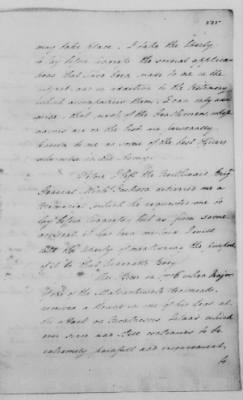 may take place. I take the liberty
to lay before Congress the several applica
tions that have been made to me on the
subject and in addition to the testimony
which accompanies them, I can only add
, that most of the Gentlemen whose
names are on the List are personally
known to me as some of the best Officers
who were in the Army.
When I left the Brigadier
General Michl Jackson delivered me a
Memorial, which he requested me to
lay before Congress, but as from some
accident, it has been I must
take the liberty of mentioning the
of it to that Honorable Body.
Mr.
of the Massachusetts Regiments
received a Wound in one of his Legs at
the attack on Montresors Island which
ever since and still continues to be
extremely painfull and inconvenient,